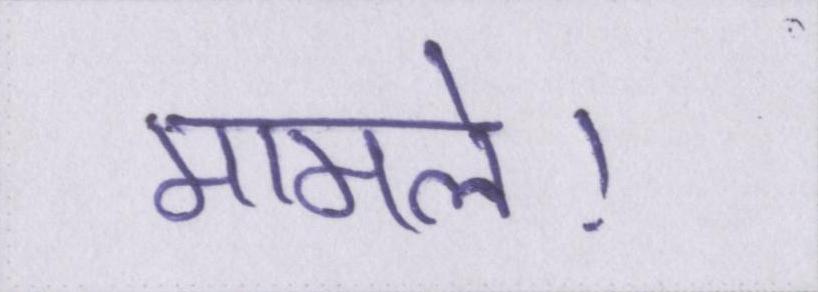 मामले!